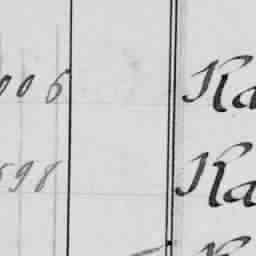 006 Ka
598 Ka